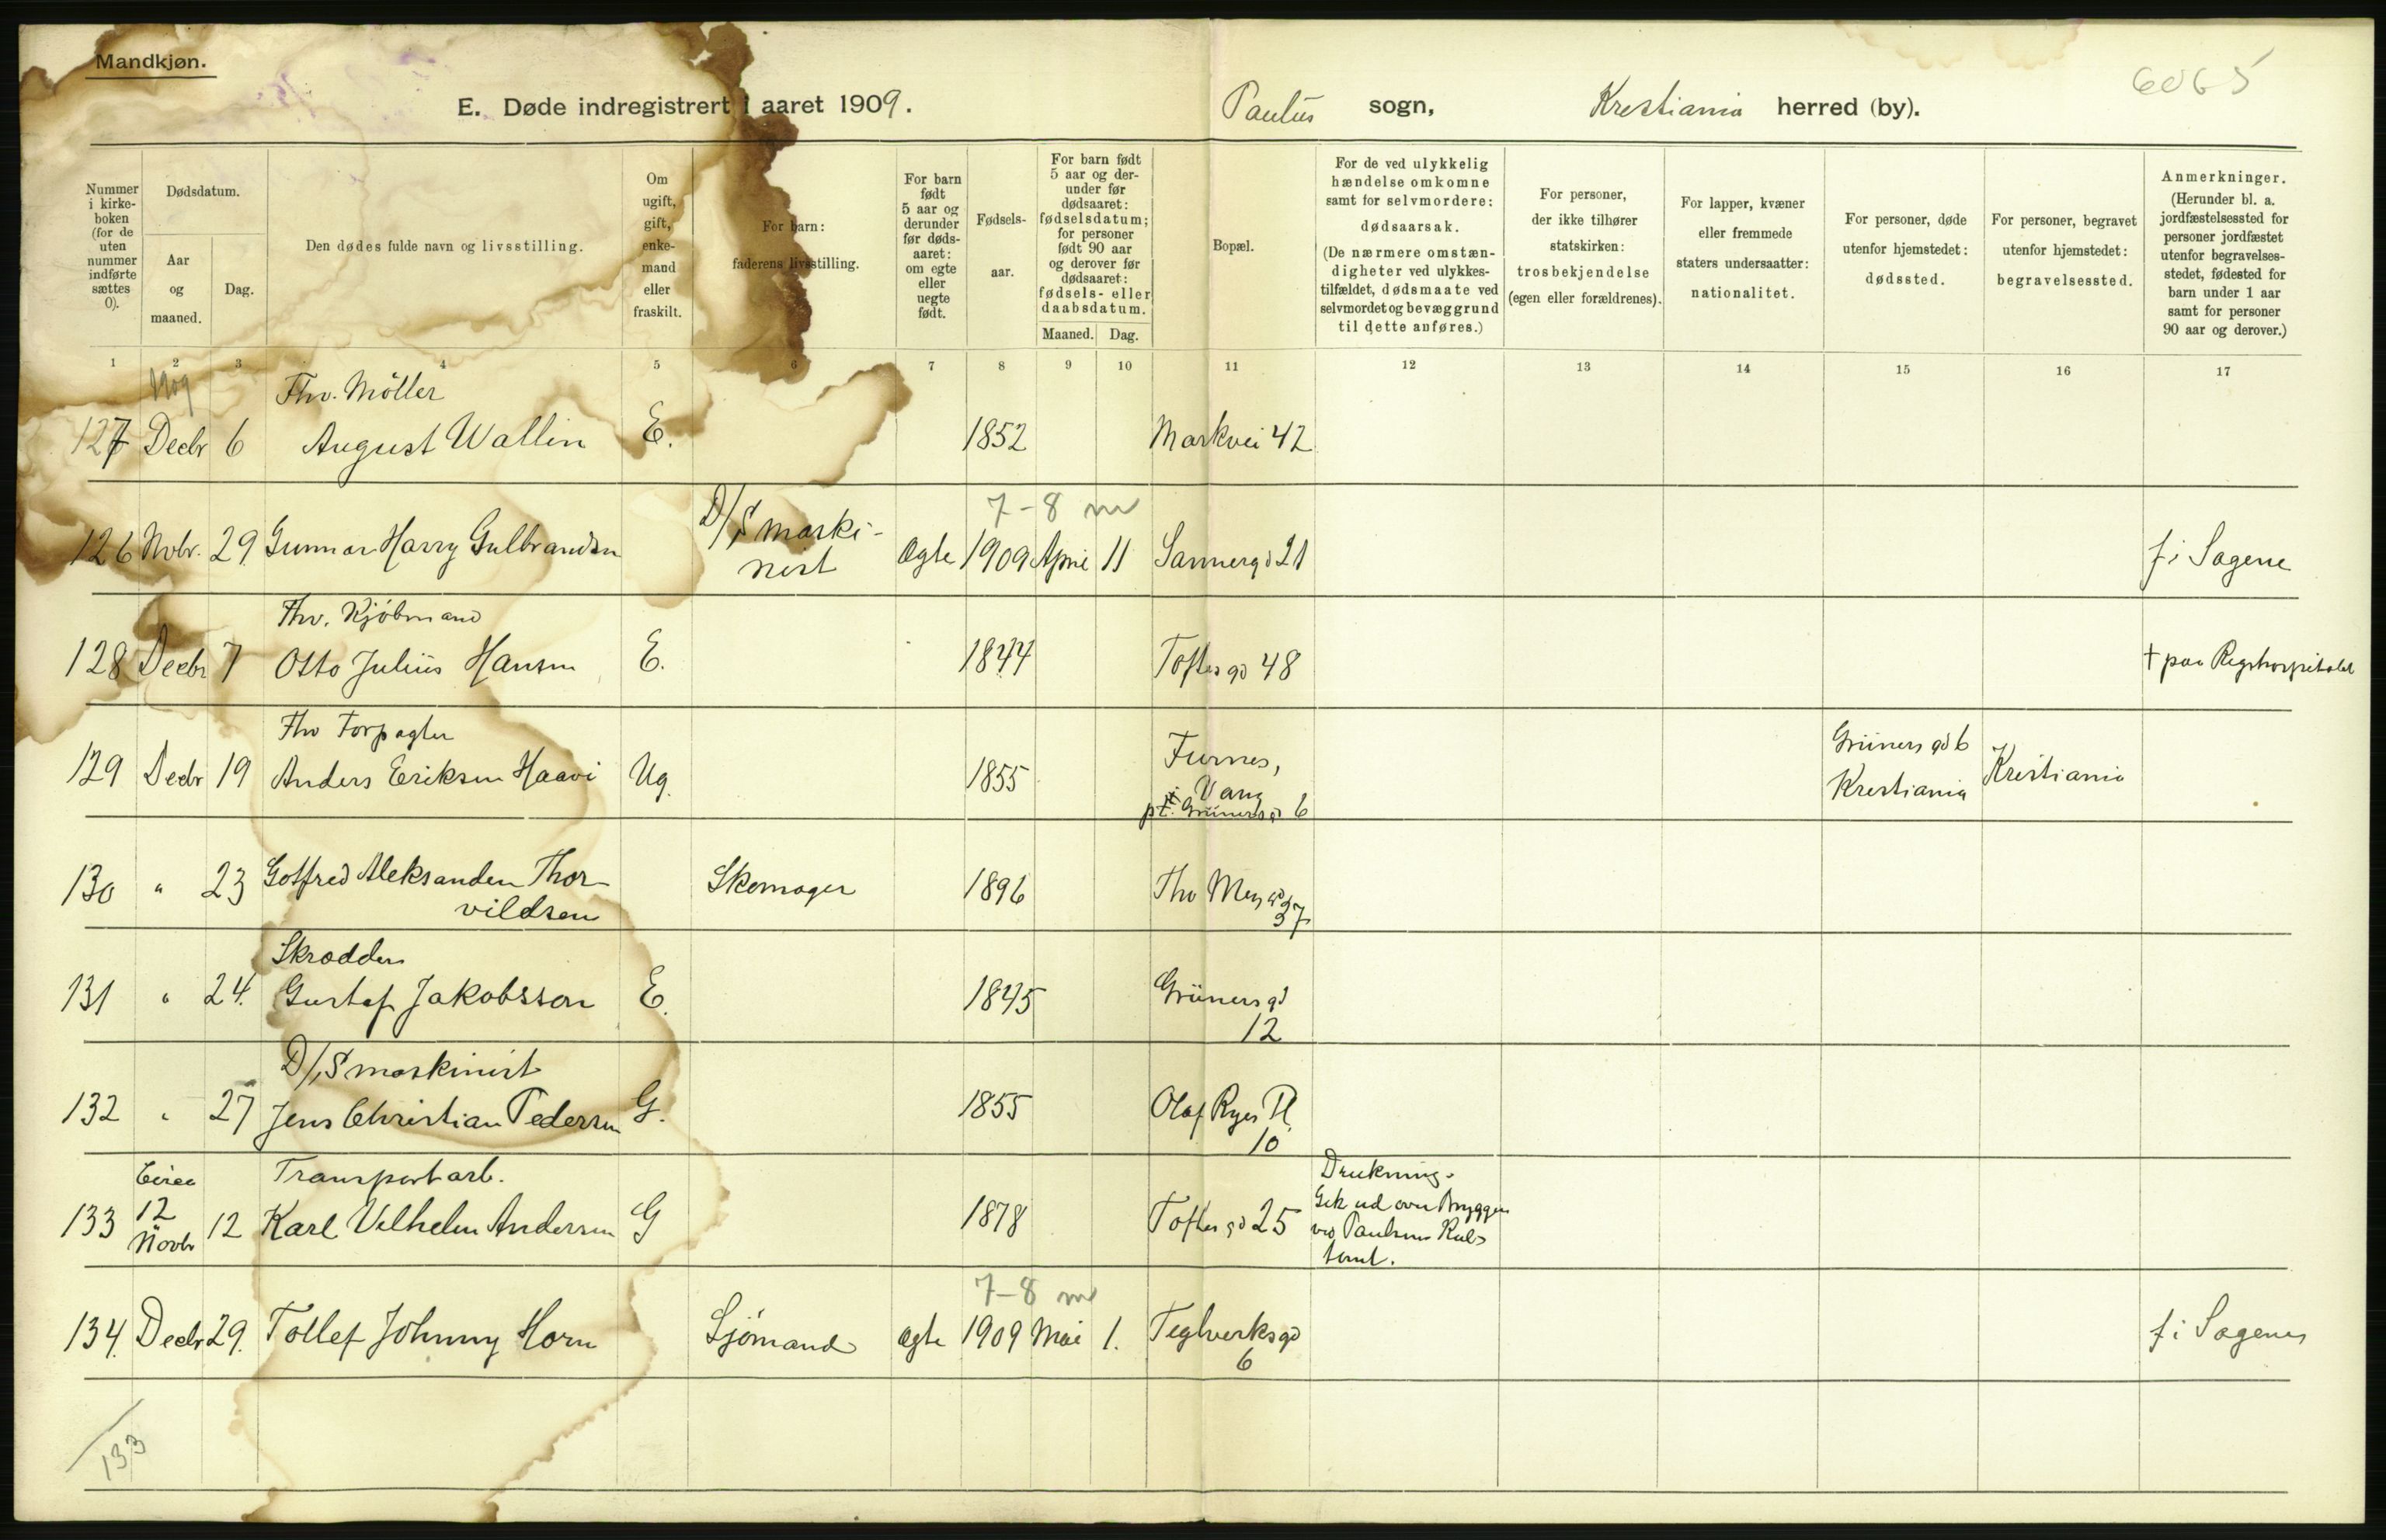 Mandkjøn.
6065
E. Døde indregistrert i aaret 1909. Paulus sogn, Kristiania herred (by).
Nummer i kirke-boken (for de uten nummer indførte sættes 0).
Dødsdatum.
Aar og maaned.
Dag.
Den dødes fulde navn og livsstilling.
Om ugift, gift, enke-mand eller fraskilt.
For barn: faderens livsstilling.
For barn født 5 aar og derunder før døds-aaret: om egte eller uegte født.
Fødsels-aar.
For barn født 5 aar og der-under før dødsaaret: fødselsdatum; for personer født 90 aar og derover før dødsaaret: fødsels- eller daabsdatum.
Maaned. Dag.
Bopæl.
For de ved ulykkelig hændelse omkomne samt for selvmordere: dødsaarsak. (De nærmere omstæn-digheter ved ulykkes-tilfældet, dødsmaate ved selvmordet og bevæggrund til dette anføres.)
For personer, der ikke tilhører statskirken: trosbekjendelse (egen eller forældrenes).
For lapper, kvæner eller fremmede staters undersaatter: nationalitet.
For personer, døde utenfor hjemstedet: dødssted.
For personer, begravet utenfor hjemstedet: begravelsessted.
Anmerkninger. (Herunder bl. a. jordfæstelsessted for personer jordfæstet utenfor begravelses-stedet, fødested for barn under 1 aar samt for personer 90 aar og derover.)
1 2 3 4 5 6 7 8 9 10 11 12 13 14 15 16 17
1909 Fhv. Möller
127 Decbr 6 August Wallin E. 1852 Markvei 42
7-8 m
126 Novbr. 29. Gunnar Harry Gulbrandsen D/S maski-nist Ægte 1909 April 11 Sannergd 21 f i Sagene
Fhv. Kjöbmand
128 Decbr 7 Otto Julius Hansen E. 1844 Toftesgd 48 † paa Rigshospitalet
Fhv Forpagter
129 Decbr 19 Anders Eriksen Haavi Ug. 1855 Furnes, Vang
pt. Grünersgd 6 Grünersgd 6 Kristiania Kristiania
130 " 23 Gotfred Aleksander Thor-
vildsen Skomager 1896 Thv Meyersgd 37
Skrædder
131 " 24. Gustaf Jakobsson E. 1845 Grünersgd
12
D/S maskinist
132 " 27 Jens Christian Pedersen G. 1855 Olaf Ryes Pl.
10
Circa Transportarb. Drukning.
133 12 Novbr 12 Karl Vilhelm Andersen G 1878 Toftesgd 25 Gik ud over Bryggen
ved Paulsens Kul-
tomt.
7-8 m
134. Decbr 29. Tollef Johnny Horn Sjömand ægte 1909 Mai 1. Teglverksgd
6 f i Sagenes
133